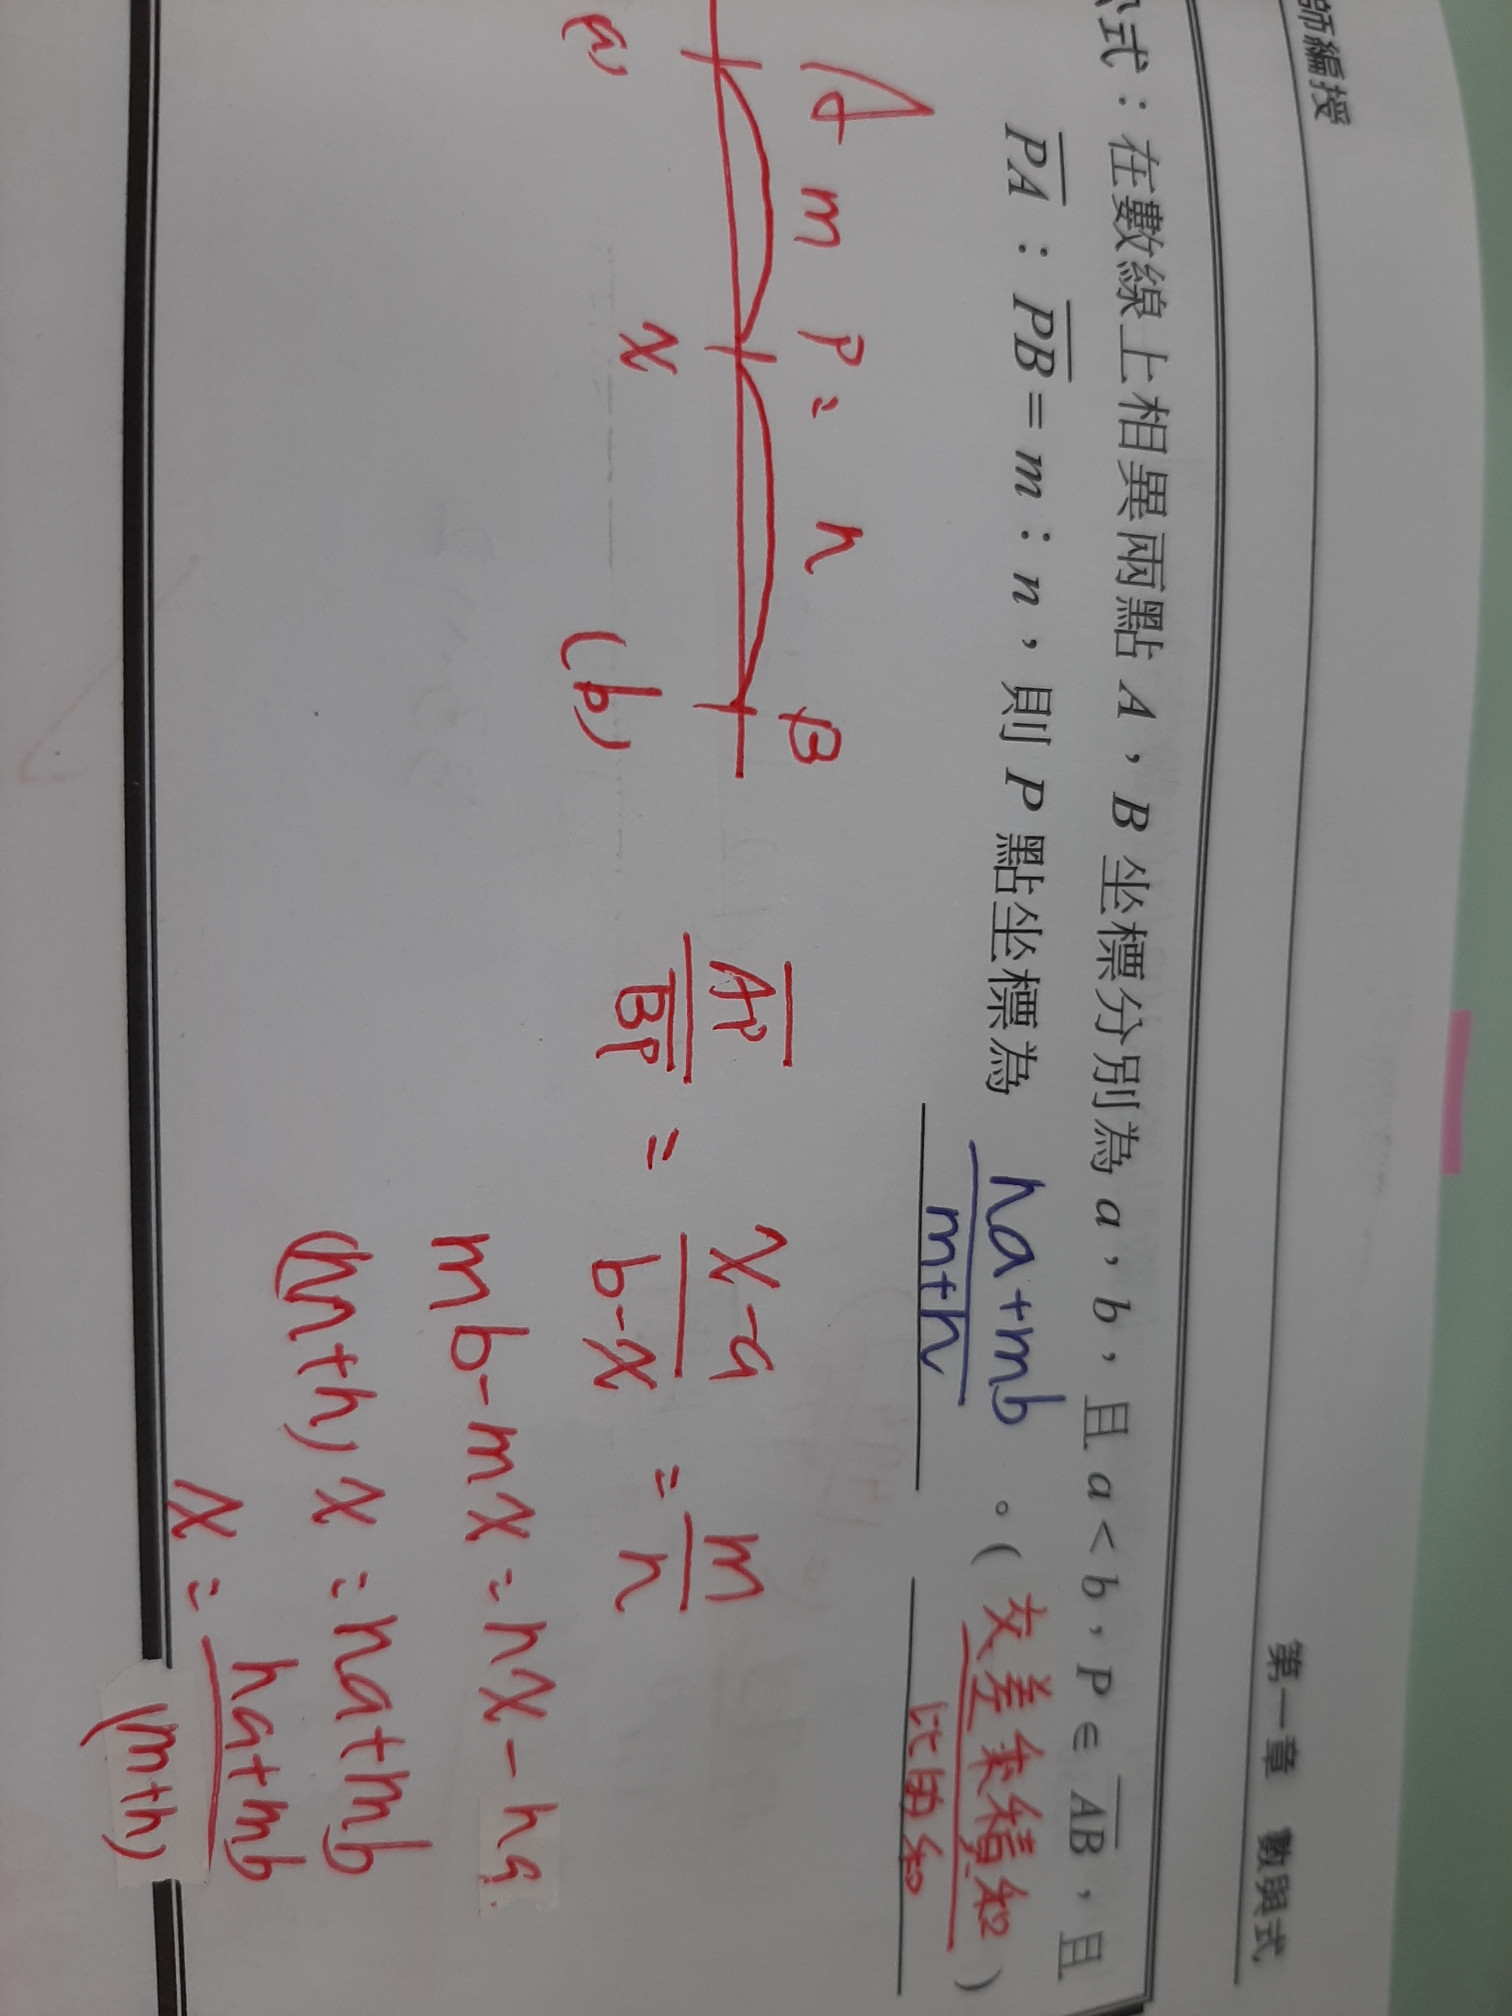 師編授
第一章 數與式
公式：在數線上相異兩點 A，B 坐標分別為 a，b，且 a < b，P ∈ \overline{AB}，且
\overline{PA}：\overline{PB} = m：n，則 P 點坐標為 \frac{na+mb}{m+n}。（\frac{交差乘積和}{比的和}）
A m P = n B
(a) x (b)
\frac{\overline{AP}}{\overline{BP}} = \frac{x-a}{b-x} = \frac{m}{n}
mb-mx = nx-na
(m+n)x = na+mb
x = \frac{na+mb}{(m+n)}